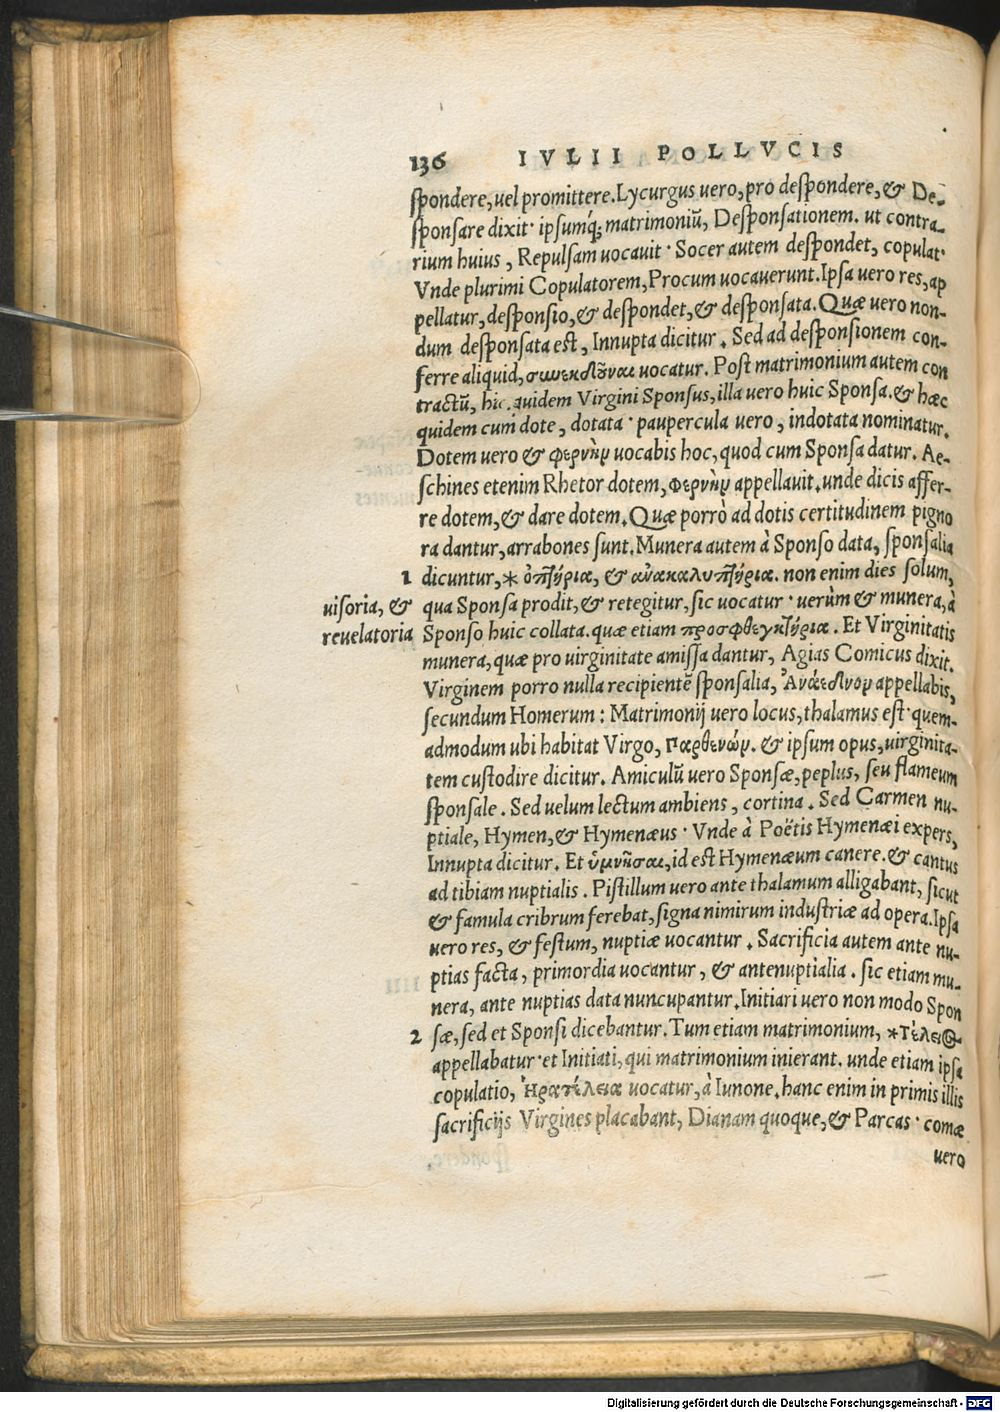 136 IVLII POLLVCIS
spondere, uel promittere. Lycurgus uero, pro despondere, & De-
sponsare dixit· ipsumq́; matrimoniũ, Desponsationem. ut contra-
rium huius, Repulsam uocauit· Socer autem despondet, copulat·
Vnde plurimi Copulatorem, Procum uocauerunt. Ipsa uero res, ap
pellatur, desponsio, & despondet, & desponsata. Quæ uero non-
dum desponsata est, Innupta dicitur. Sed ad desponsionem con-
ferre aliquid, συνεκδοῦναι uocatur. Post matrimonium autem con
tractũ, hic quidem Virgini Sponsus, illa uero huic Sponsa. & hæc
quidem cum dote, dotata· paupercula uero, indotata nominatur.
Dotem uero & φερνὴν uocabis hoc, quod cum Sponsa datur. Ae-
schines etenim Rhetor dotem, φερνὴν appellauit. unde dicis affer-
re dotem, & dare dotem. Quæ porrò ad dotis certitudinem pigno
ra dantur, arrabones sunt. Munera autem à Sponso data, sponsalia
1 dicuntur, * ὀπτήρια, & ἀνακαλυπτήρια. non enim dies solum,
uisoria, & qua Sponsa prodit, & retegitur, sic uocatur· uerùm & munera, à
reuelatoria Sponso huic collata. quæ etiam προσφθεγκτήρια. Et Virginitatis
munera, quæ pro uirginitate amissa dantur, Agias Comicus dixit.
Virginem porro nulla recipientẽ sponsalia, Ἀνάεδνον appellabis,
secundum Homerum: Matrimonij uero locus, thalamus est· quem-
admodum ubi habitat Virgo, Παρθενών. & ipsum opus, uirginita-
tem custodire dicitur. Amiculũ uero Sponsæ, peplus, seu flameum
sponsale. Sed uelum lectum ambiens, cortina. Sed Carmen nu-
ptiale, Hymen, & Hymenæus· Vnde à Poëtis Hymenæi expers,
Innupta dicitur. Et ὑμνῆσαι, id est Hymenæum canere. & cantus
ad tibiam nuptialis. Pistillum uero ante thalamum alligabant, sicut
& famula cribrum ferebat, signa nimirum industriæ ad opera. Ipsa
uero res, & festum, nuptiæ uocantur. Sacrificia autem ante nu-
ptias facta, primordia uocantur, & antenuptialia. sic etiam mu-
nera, ante nuptias data nuncupantur. Initiari uero non modo Spon
2 sæ, sed et Sponsi dicebantur. Tum etiam matrimonium, *Τέλειος
appellabatur· et Initiati, qui matrimonium inierant. unde etiam ipsa
copulatio, Ἡρατέλεια uocatur, à Iunone. hanc enim in primis illis
sacrificijs Virgines placabant, Dianam quoque, & Parcas· comæ
uero
Digitalisierung gefördert durch die Deutsche Forschungsgemeinschaft - DFG